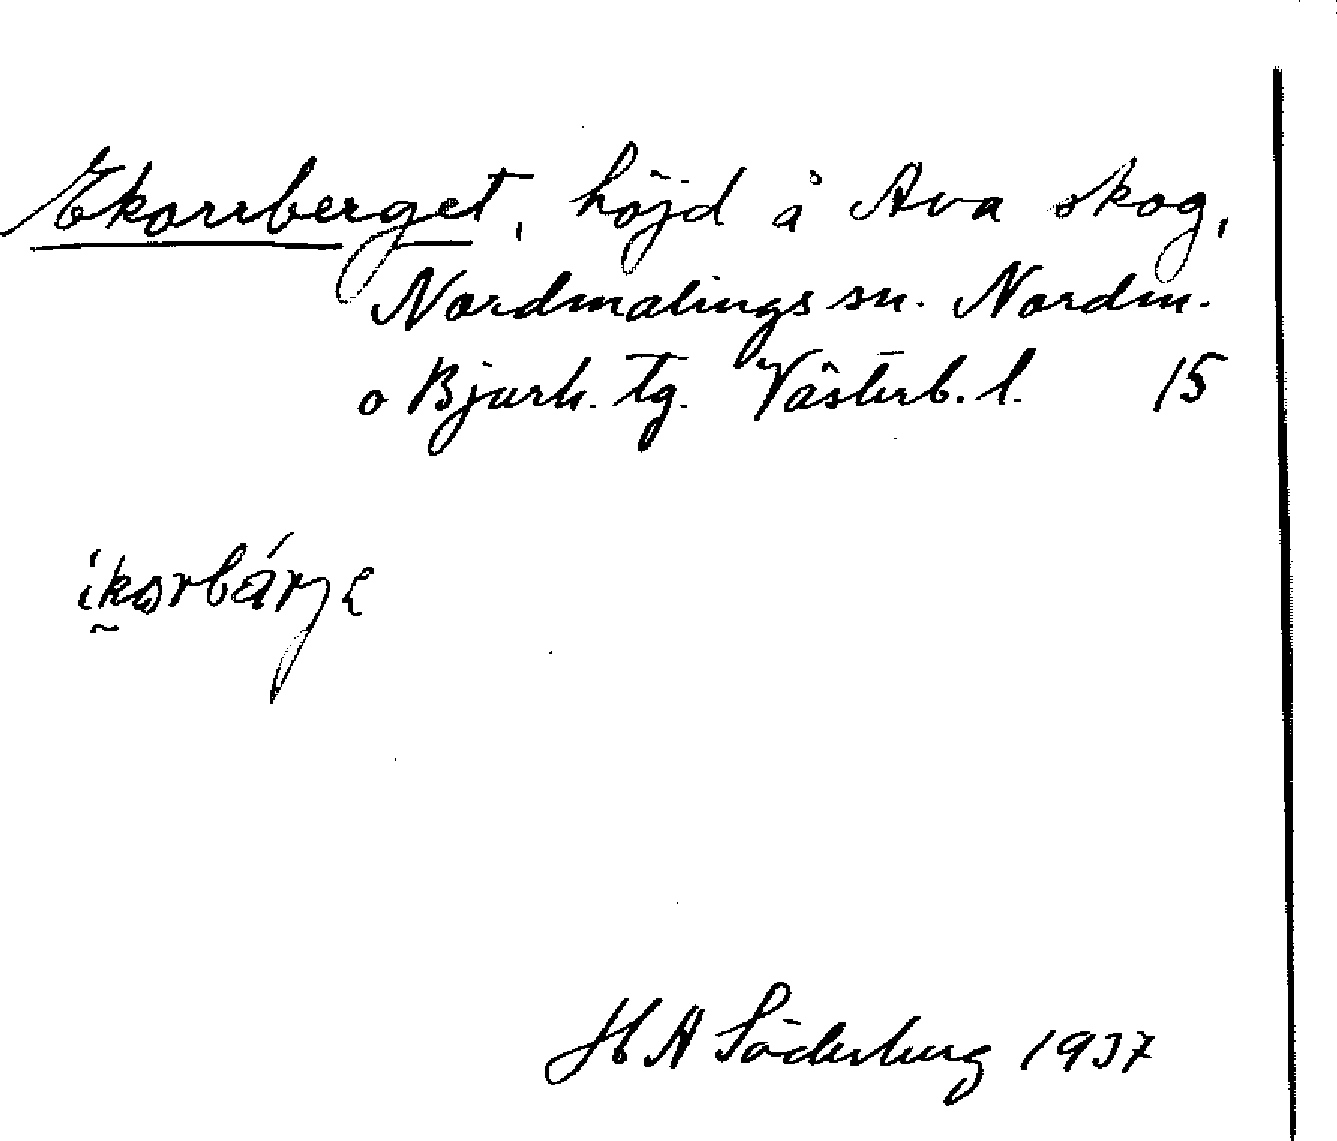 Ekorrberget, höjd å Ava skog,
Nordmalings sn. Nordm.
o Bjurh. tg. Västerb. l. 15
íkorbárjе
H A Söderberg 1937